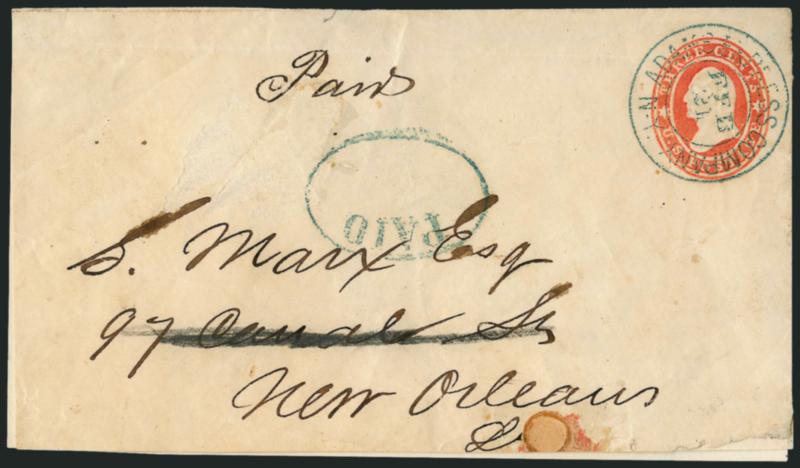 Paid
ADAMS EXPRESS COMPANY
THREE CENTS
FEB
21
PAID
S. Marx Esq
97 Canal St
New Orleans